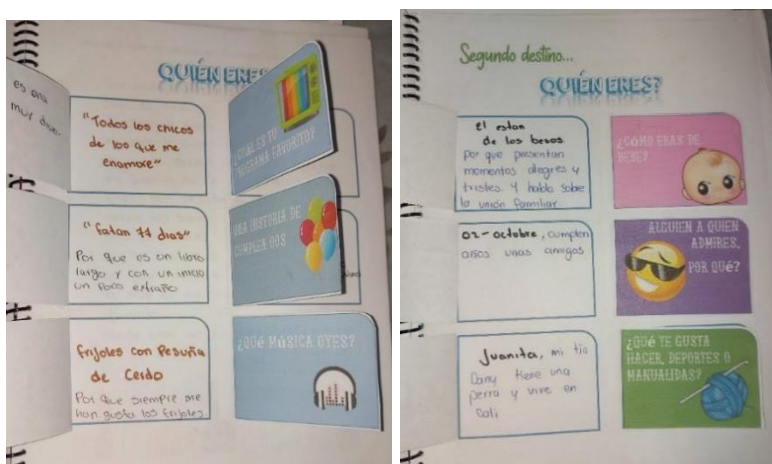 es una
muy
QUIÉN ERES
"Todos los chicos
de los que me
enamore"
¿CUÁL ES TU
PROGRAMA FAVORITO?
"fatan 11 dias"
Por que es un libro
largo y con un inicio
un poco extraño
UNA HISTORIA DE
CUMPLEAÑOS
frijoles con Pesuña
de Cerdo
Por que siempre me
han gusta los frijoles
¿QUÉ MÚSICA OYES?
Segundo destino...
QUIÉN ERES?
El estan
de los besos
Por que presentan
momentos alegres y
tristes. Y habla sobre
la unión familiar
¿CÓMO ERAS DE
BEBE?
02-octubre, cumplen
años unas amigas
ALGUIEN A QUIEN
ADMIRES,
POR QUÉ?
Juanita, mi tia
Dany tiene una
perra y vive en
Cali
¿QUÉ TE GUSTA
HACER, DEPORTES O
MANUALIDAS?